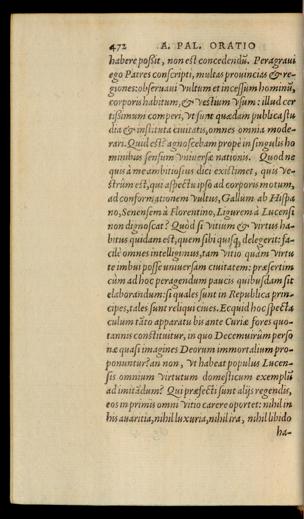 472 A. PAL. ORATIO
habere poßit, non est concedendũ. Peragraui
ego Patres conscripti, multas prouincias & re-
giones: obseruaui vultum et incessum hominũ,
corporis habitum, & vestium vsum: illud cer
tißimum comperi, vt sunt quædam publica stu
dia & instituta ciuitatis, omnes omnia mode-
rari. Quid est? agnosc ebam propè in singulis ho
minibus sensum vniuersæ nationis. Quod ne
quis à me ambitiosius dici existimet, quis ve-
strûm est, qui aspectu ipso ad corporis motum,
ad conformationem vultus, Gallum ab Hispa
no, Senensem à Florentino, Ligurem à Lucensi
non dignoscat? Quòd si vitium & virtus ha-
bitus quidam est, quem sibi quisq; delegerit: fa-
cilè omnes intelligimus, tam vitio quàm virtu
te imbui posse vniuersam ciuitatem: præsertim
cùm ad hoc peragendum paucis quibusdam sit
elaborandum: si quales sunt in Republica prin-
cipes, tales sunt reliqui ciues. Ecquid hoc specta
culum tãto apparatu bis ante Curiæ fores quo-
tannis constituitur, in quo Decemuirûm perso
næ quasi imagines Deorum immortalium pro-
ponuntur? an non, vt habeat populus Lucen-
sis omnium virtutum domesticum exemplũ
ad imitãdum? Qui præfecti sunt alijs regendis,
eos in primis omni vitio carere oportet: nihil in
his auaritia, nihil luxuria, nihil ira, nihil libido
ha-